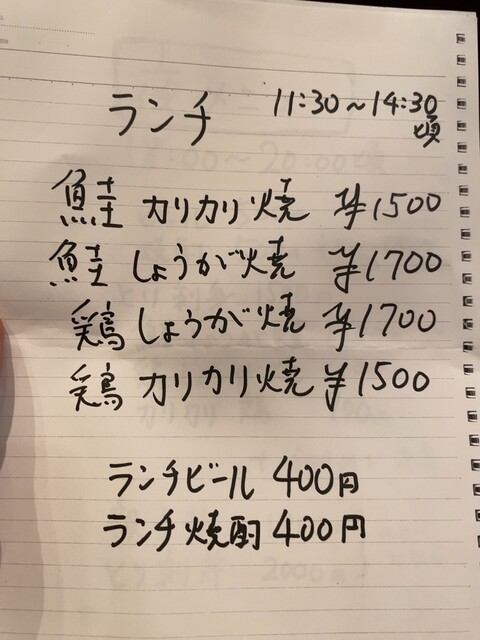 ランチ 11:30～14:30
頃
鮭 カリカリ焼 ¥1500
鮭 しょうが焼 ¥1700
鶏 しょうが焼 ¥1700
鶏 カリカリ焼 ¥1500
ランチビール 400円
ランチ焼酎 400円